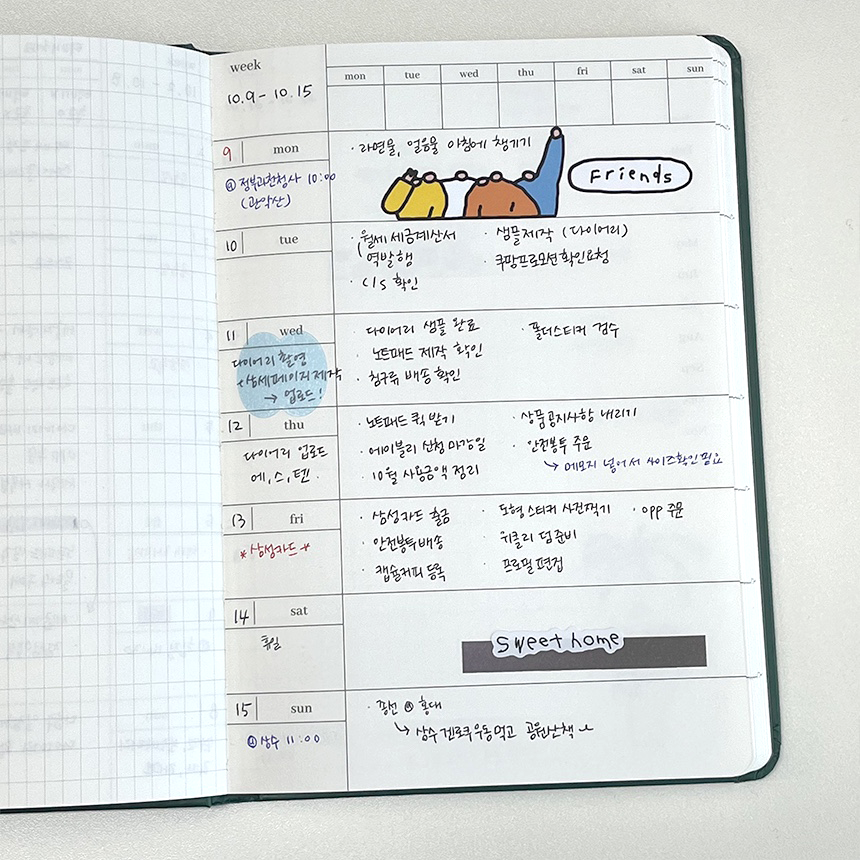 week
10.9 - 10.15
mon tue wed thu fri sat sun
9 mon
@ 정부과천청사 10:00
(관악산)
· 라면물, 얼음물 아침에 챙기기
Friends
10 tue
· 월세 세금계산서
역발행
· C/S 확인
· 샘플제작 (다이어리)
· 쿠팡프로모션확인요청
11 wed
다이어리 촬영
+상세페이지제작
→ 업로드!
· 다이어리 샘플 완료
· 노트패드 제작 확인
· 침구류 배송 확인
· 폴더스티커 검수
12 thu
다이어리 업로드
에, 스, 텐.
· 노트패드 퀵 받기
· 에이블리 신청 마감일
· 10월 사용금액 정리
· 상품공지사항 내리기
· 안전봉투 주문
↳ 메모지 넣어서 사이즈확인 필요
13 fri
*삼성카드*
· 삼성카드 출금
· 안전봉투배송
· 캡슐커피 등록
· 도형스티커 사진찍기
· 치클리 덤 준비
· 프로필 편집
· opp 주문
14 sat
휴일
sweet home
15 sun
@상수 11:00
· 종선 @ 홍대
↳ 상수 겐로쿠우동먹고 공원산책